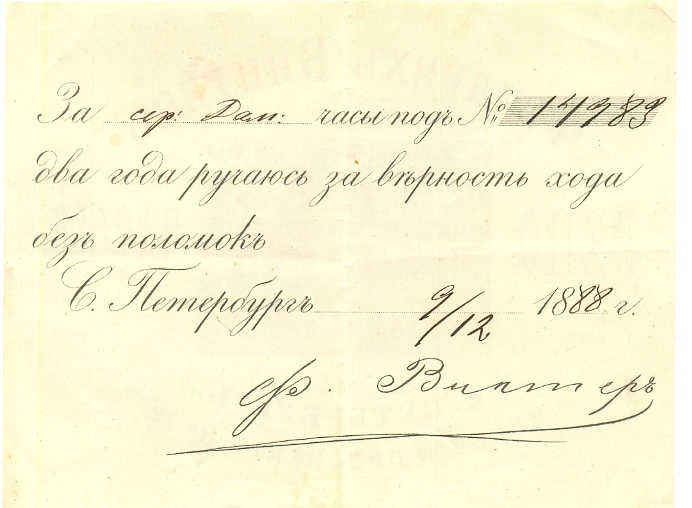 За сер: Дам: часы подъ № 14983
два года ручаюсь за вѣрность хода
безъ поломокъ
С. Петербургъ 9/12 1888 г.
Ф. Винтеръ